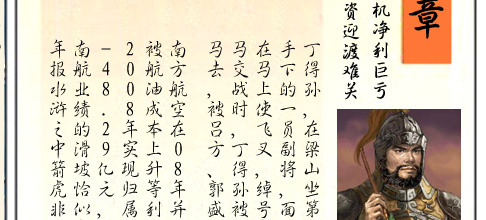 章
机净利巨亏
资迎渡难关
丁得孙,在梁山坐第
手下的一员副将,面
在马上使飞叉,绰号
马交战时,丁得孙被
马去,被吕方、郭盛
南方航空在08年并
被航油成本上升等利
2008年实现归属
-48.29亿元,
南航业绩的滑坡恰似,
年报水浒之中箭虎非